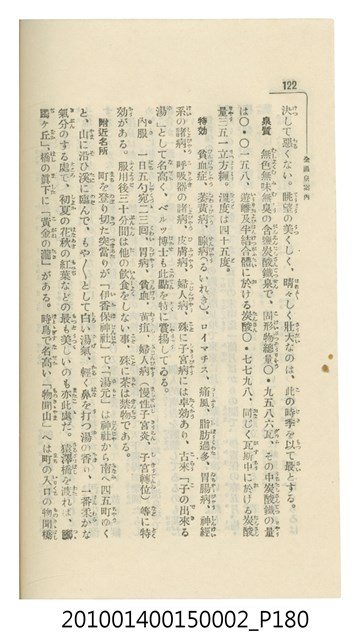 122
全國温泉案內
決して悪くない。眺望の美しく、晴々しく壯大なのは、此の時季を以て最とする。
泉質 無色無味無臭の含鹽炭酸鐵泉で、固形物總量〇・九五八六瓦、その中炭酸鐵の量
は〇・〇一五八、遊離及半結合體に於ける炭酸〇・七七九八、同じく瓦斯中に於ける炭酸
量三五一立方糎。温度は四十五度。
特効 貧血症、萎黃病、腺病(るいれき)、ロイマチス、痛風、脂肪過多、胃腸病、神經
系の諸病、呼吸器の諸病、皮膚病、婦人病、殊に子宮病には卓効あり、古來「子の出來る
湯」として名高く、ベルツ博士も此點を特に賞揚してゐる。
內服 一日五勺宛二三回、胃病、貧血、黃疸、婦人病(慢性子宮炎、子宮轉位)等に特
効がある。服用後三十分間は他の飲食をしない事、殊に茶は禁物である。
附近名所 町を登り切た突當りが「伊香保神社」で、「湯元」は神社から南へ四五町ゆく
と、山に沿ひ溪に臨んで、もや〳〵として白い湯氣、輕く鼻を打つ湯の香り、一番柔かな
氣分のする處で、初夏の花秋の紅葉などの最も美しいのも亦此處だ。猿澤橋を渡れば、
ヶ丘」、橋の眞下に「黃金の瀧」がある。時鳥で名高い「物聞山」へは町の入口の物聞橋
201001400150002_P180